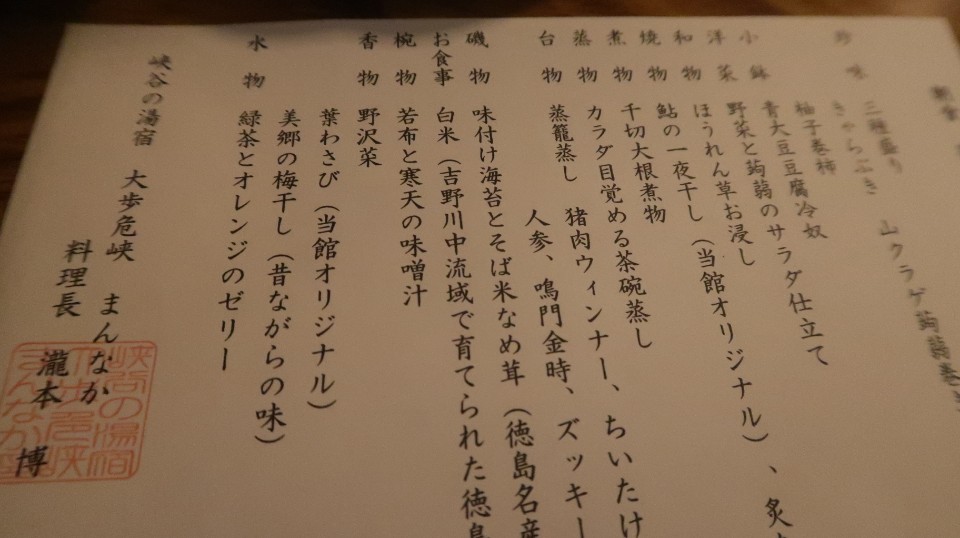 珍味 三種盛り 山クラゲ蒟蒻巻き
きゃらぶき
柚子巻柿
小鉢 青大豆豆腐冷奴
洋菜 野菜と蒟蒻のサラダ仕立て
和物 ほうれん草お浸し
焼物 鮎の一夜干し（当館オリジナル）、炙
煮物 千切大根煮物
蒸物 カラダ目覚める茶碗蒸し
台物 蒸籠蒸し 猪肉ウィンナー、ちいたけ
人参、鳴門金時、ズッキー
磯物 味付け海苔とそば米なめ茸（徳島名産
お食事 白米（吉野川中流域で育てられた徳島
椀物 若布と寒天の味噌汁
香物 野沢菜
葉わさび（当館オリジナル）
美郷の梅干し（昔ながらの味）
水物 緑茶とオレンジのゼリー
峡谷の湯宿 大歩危峡 まんなか
料理長 瀧本 博
峡谷の湯宿
大歩危峡
まんなか